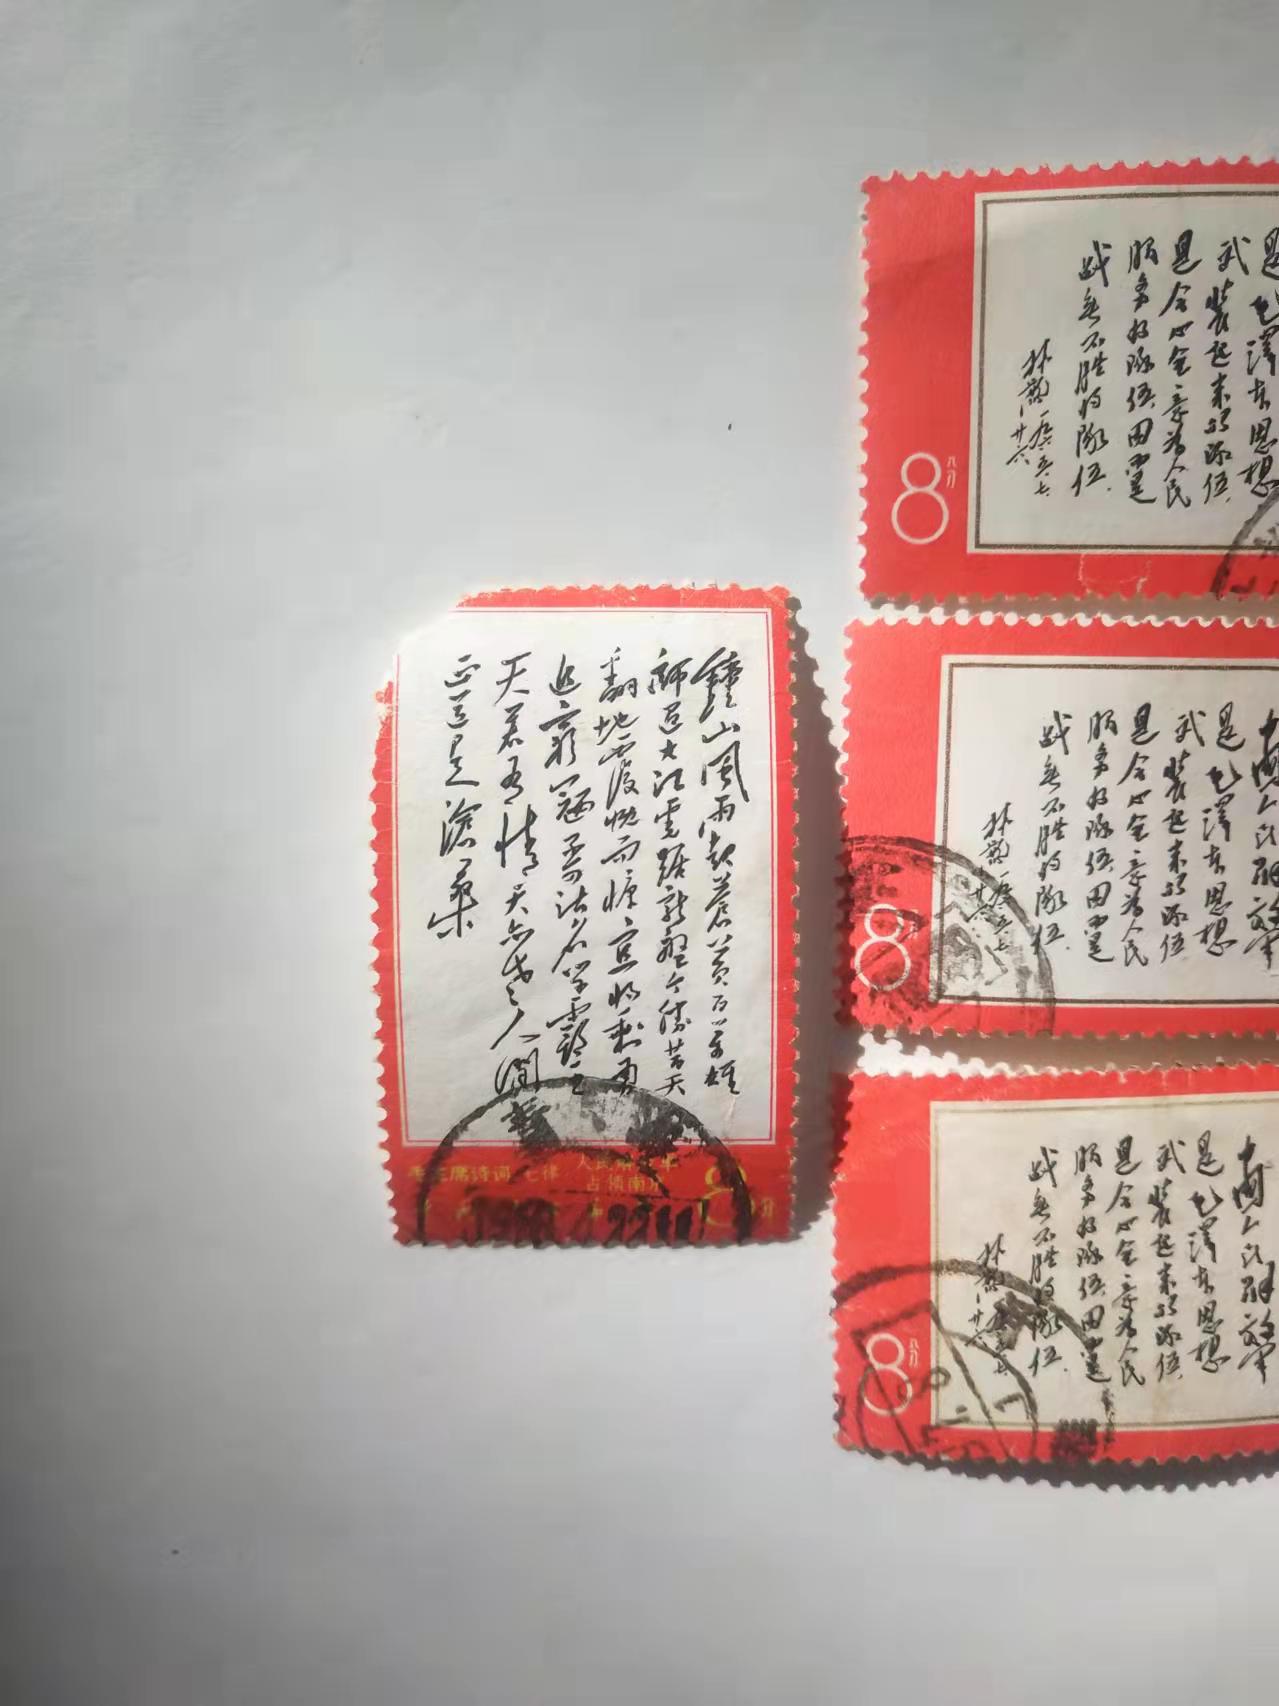 鍾山風雨起蒼黄百万雄
師过大江虎踞龍盤今勝昔天
翻地覆慨而慷宜将剩勇
追窮寇不可沽名学霸王
天若有情天亦老人間
正道是滄桑
毛主席诗词 七律 人民解放军
占领南京
8分
是毛澤东思想
武装起来的队伍
是全心全意为人民
服务的队伍,因而是
战无不胜的队伍.
林彪一九六五、七、
廿六
8八分
中國人民解放军
是毛澤东思想
武装起来的队伍
是全心全意为人民
服务的队伍,因而是
战无不胜的队伍.
林彪一九六五、七、
廿六
8
中國人民解放军
是毛澤东思想
武装起来的队伍
是全心全意为人民
服务的队伍,因而是
战无不胜的队伍.
林彪一九六五、七、
廿六
8八分